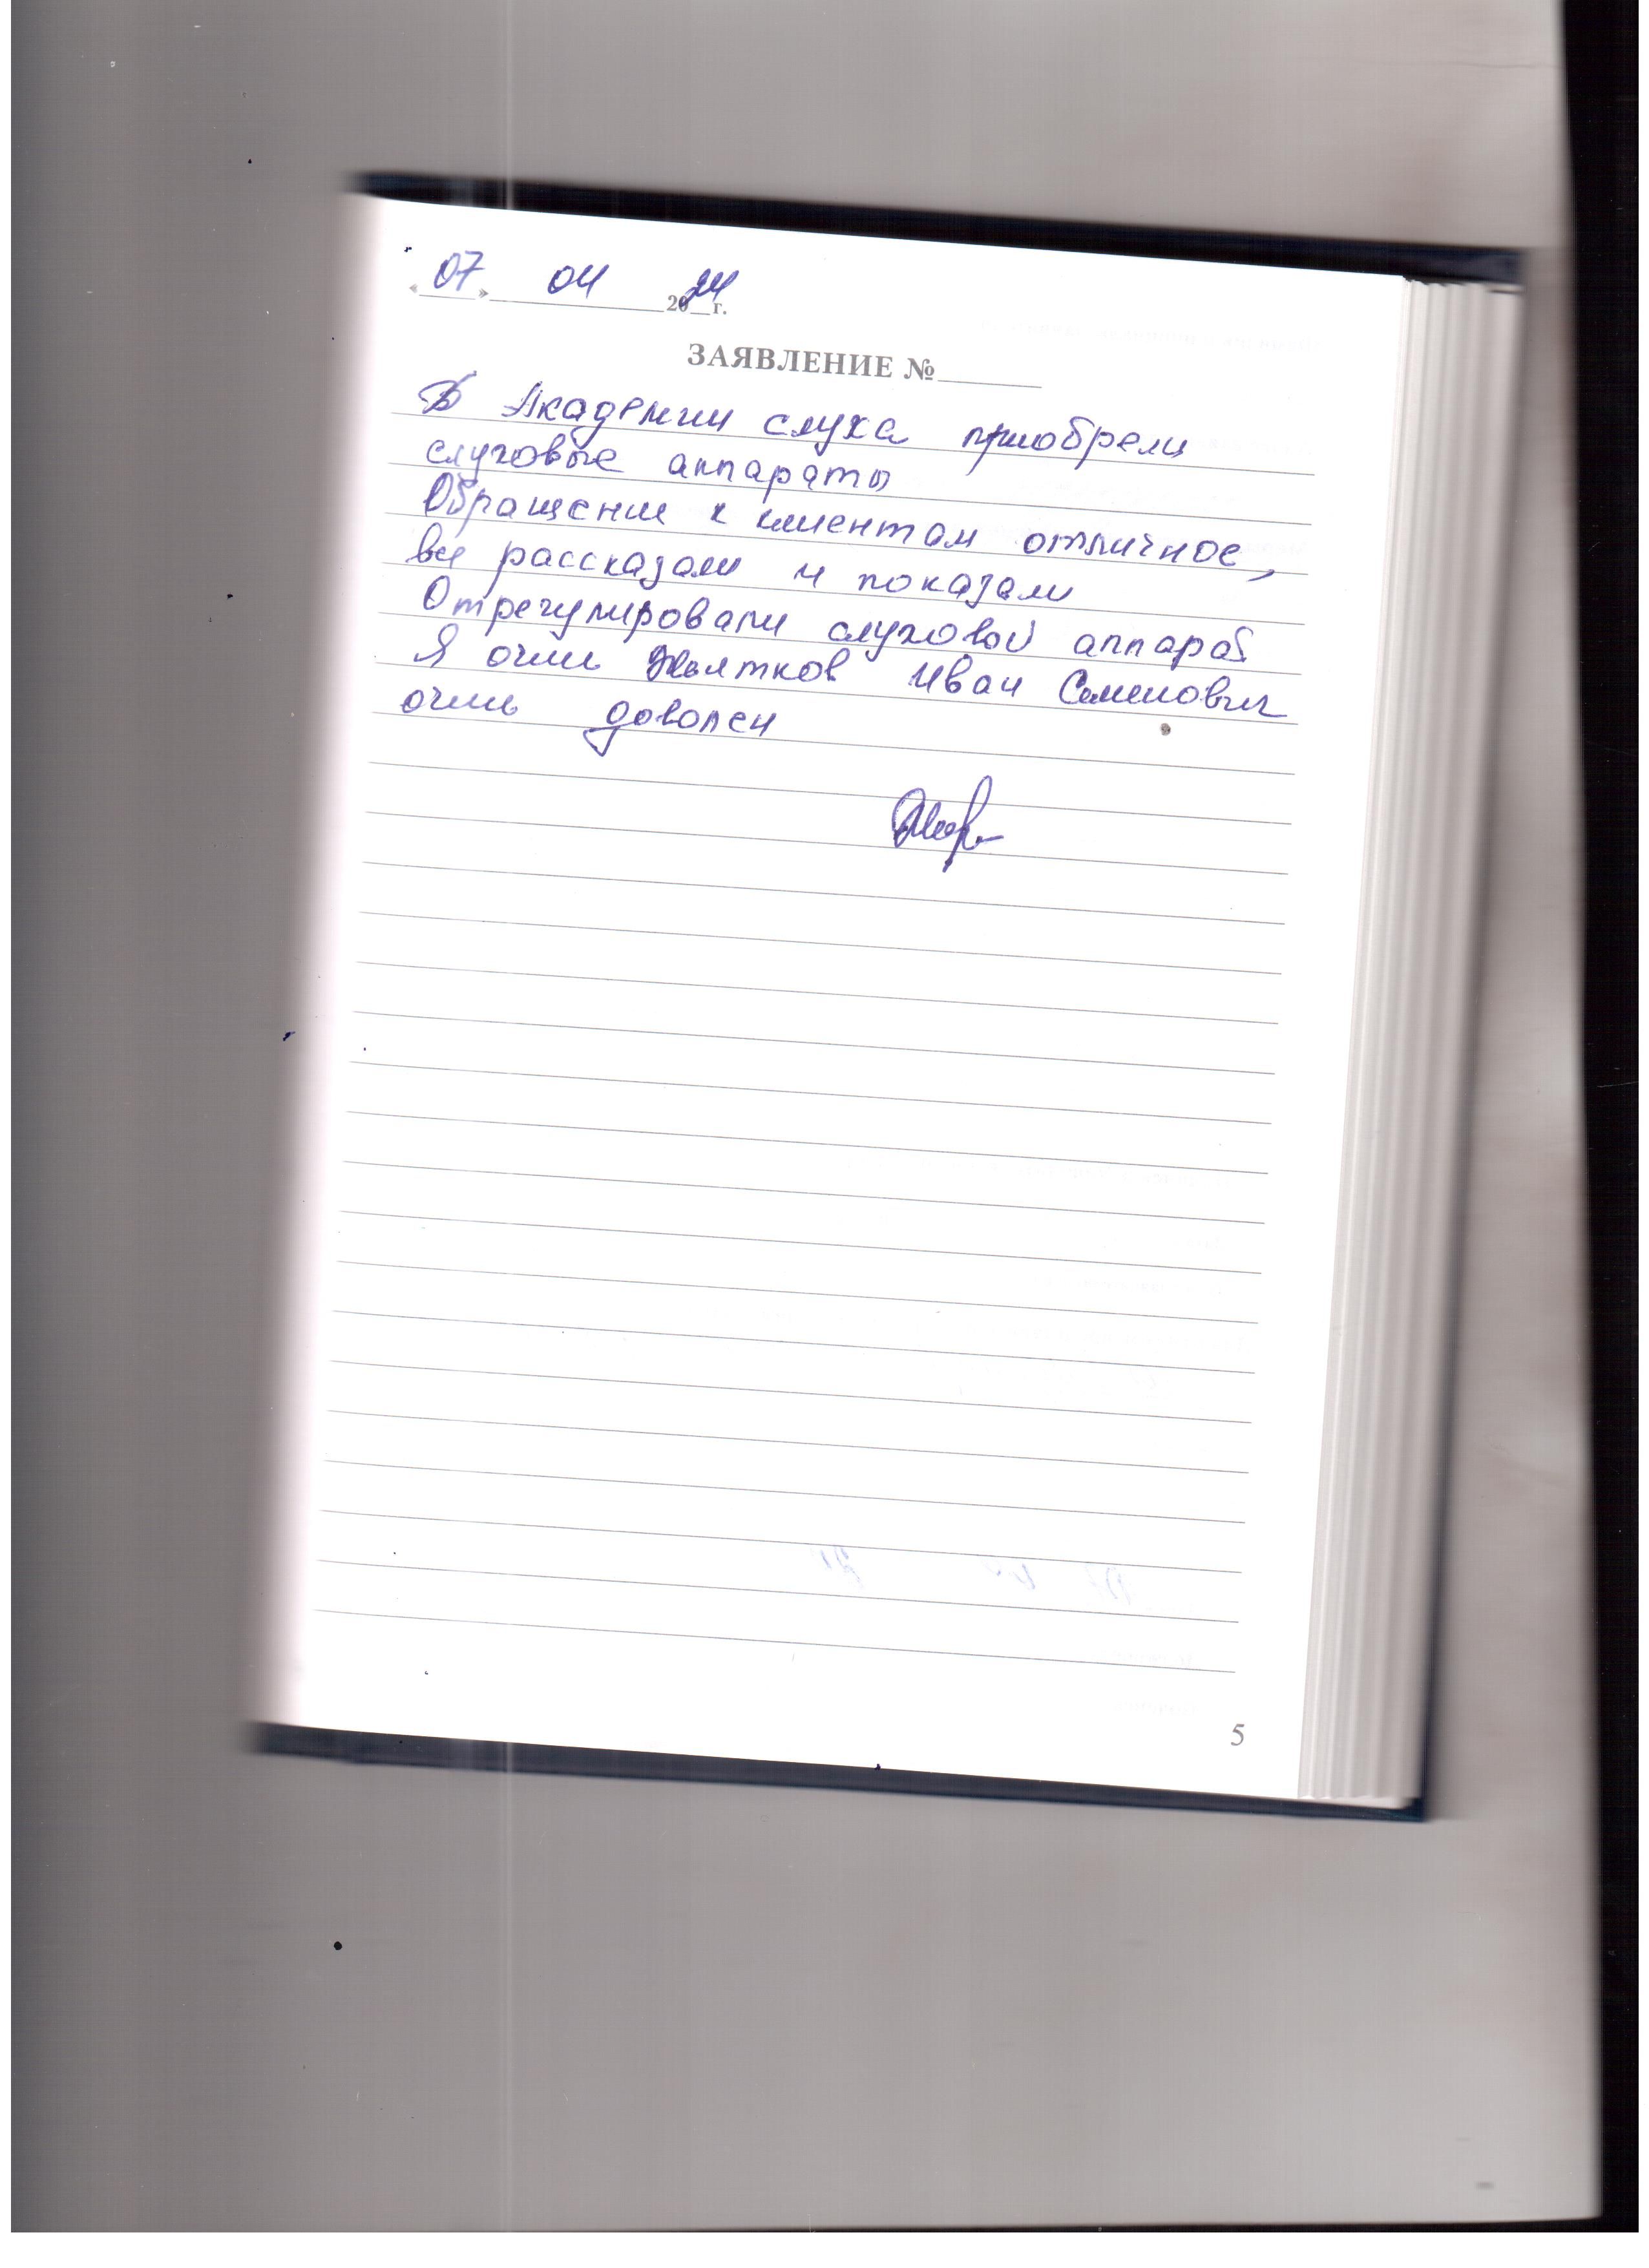 « 07 » 04 2024 г.
ЗАЯВЛЕНИЕ №
В Академии слуха приобрели
слуховые аппараты
Обращение к клиентам отличное,
все рассказали и показали
Отрегулировали слуховой аппараб
Я очень Иван Семенович
очень доволен
5